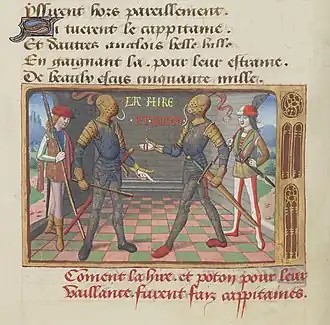 yssirent hors pareillement.
Si tuerent le cappitaine.
Et dautres anglois belle bille
En gaignant la. pour leur estraine.
De beaulx escus cinquante mille.
LA HIRE
ET POTON
Coment la hire. et poton pour leur
vaillante. furent faiz cappitaines.